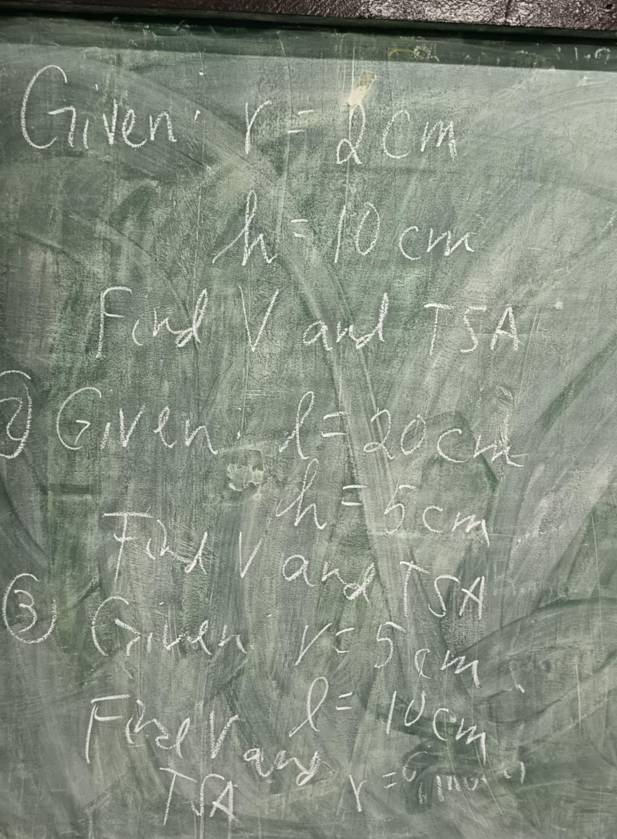 Given: r = 2 cm
h = 10 cm
Find V and TSA
② Given: l = 20 cm
h = 5 cm
Find V and TSA
③ Given: r = 5 cm
l = 10 cm
Find V and
TSA r =